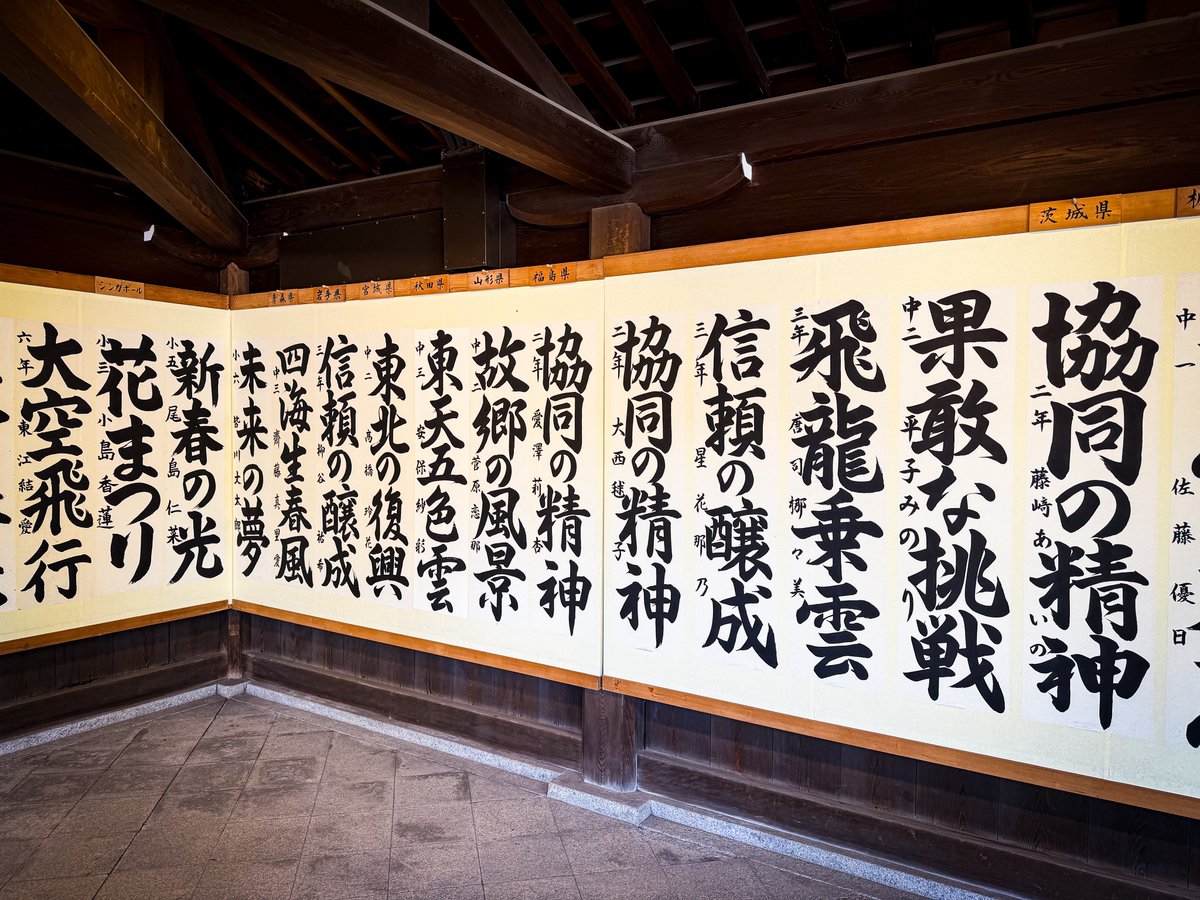 茨城県
福島県
山形県
秋田県
宮城県
岩手県
青森県
シンガポール
中一 佐藤優日
協同の精神
二年 藤﨑あいの
果敢な挑戦
中二 平子みのり
飛龍乗雲
三年 唐司梛々美
信頼の醸成
三年 星花那乃
協同の精神
二年 大西毬子
協同の精神
二年 愛澤莉杏
故郷の風景
中二 菅原恋那
東天五色雲
中三 安保紗彩
東北の復興
中二 高橋玲花
信頼の醸成
三年 柳谷祐希
四海生春風
中三 齋藤真里愛
未来の夢
小六 川大太郎
新春の光
小五 尾島仁菜
花まつり
小三 小島香蓮
大空飛行
六年 東江結愛